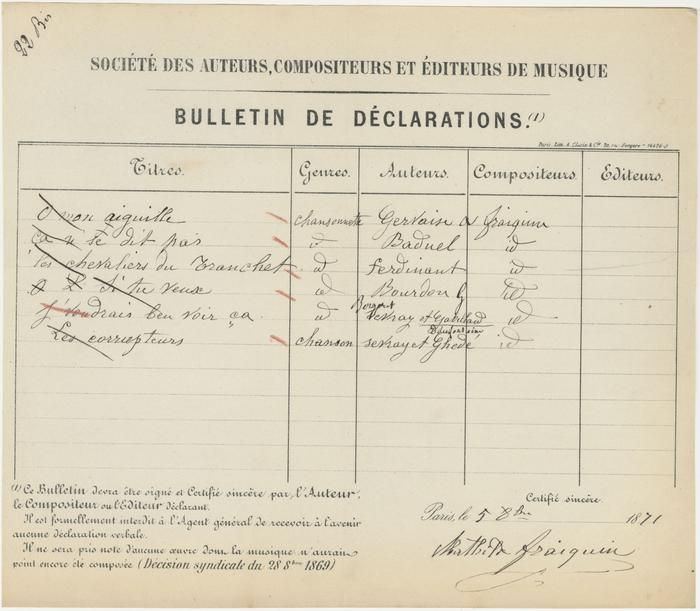 22 Bis
SOCIÉTÉ DES AUTEURS, COMPOSITEURS ET ÉDITEURS DE MUSIQUE
BULLETIN DE DÉCLARATIONS.(1)
Titres. Genres. Auteurs. Compositeurs. Editeurs.
O mon aiguille chansonnette Gervaise A fraiquin
ça n' se dit pas id Baduel id
les chevaliers du Tranchet id Ferdinant id
Si tu veux id Bourdon G id
j' voudrais ben voir ça id sevray et id
Les corrupteurs chanson sevray et Ghédé id
(1) Ce Bulletin devra être signé et Certifié sincère par l'Auteur,
le Compositeur ou l'Editeur déclarant.
Il est formellement interdit à l'Agent général de recevoir à l'avenir
aucune déclaration verbale.
Il ne sera pris note d'aucune œuvre dont la musique n'aurait
point encore été composée (Décision syndicale du 28 8bre 1869)
Certifié sincère.
Paris, le 5 8bre 1871
Mathilde fraiquin